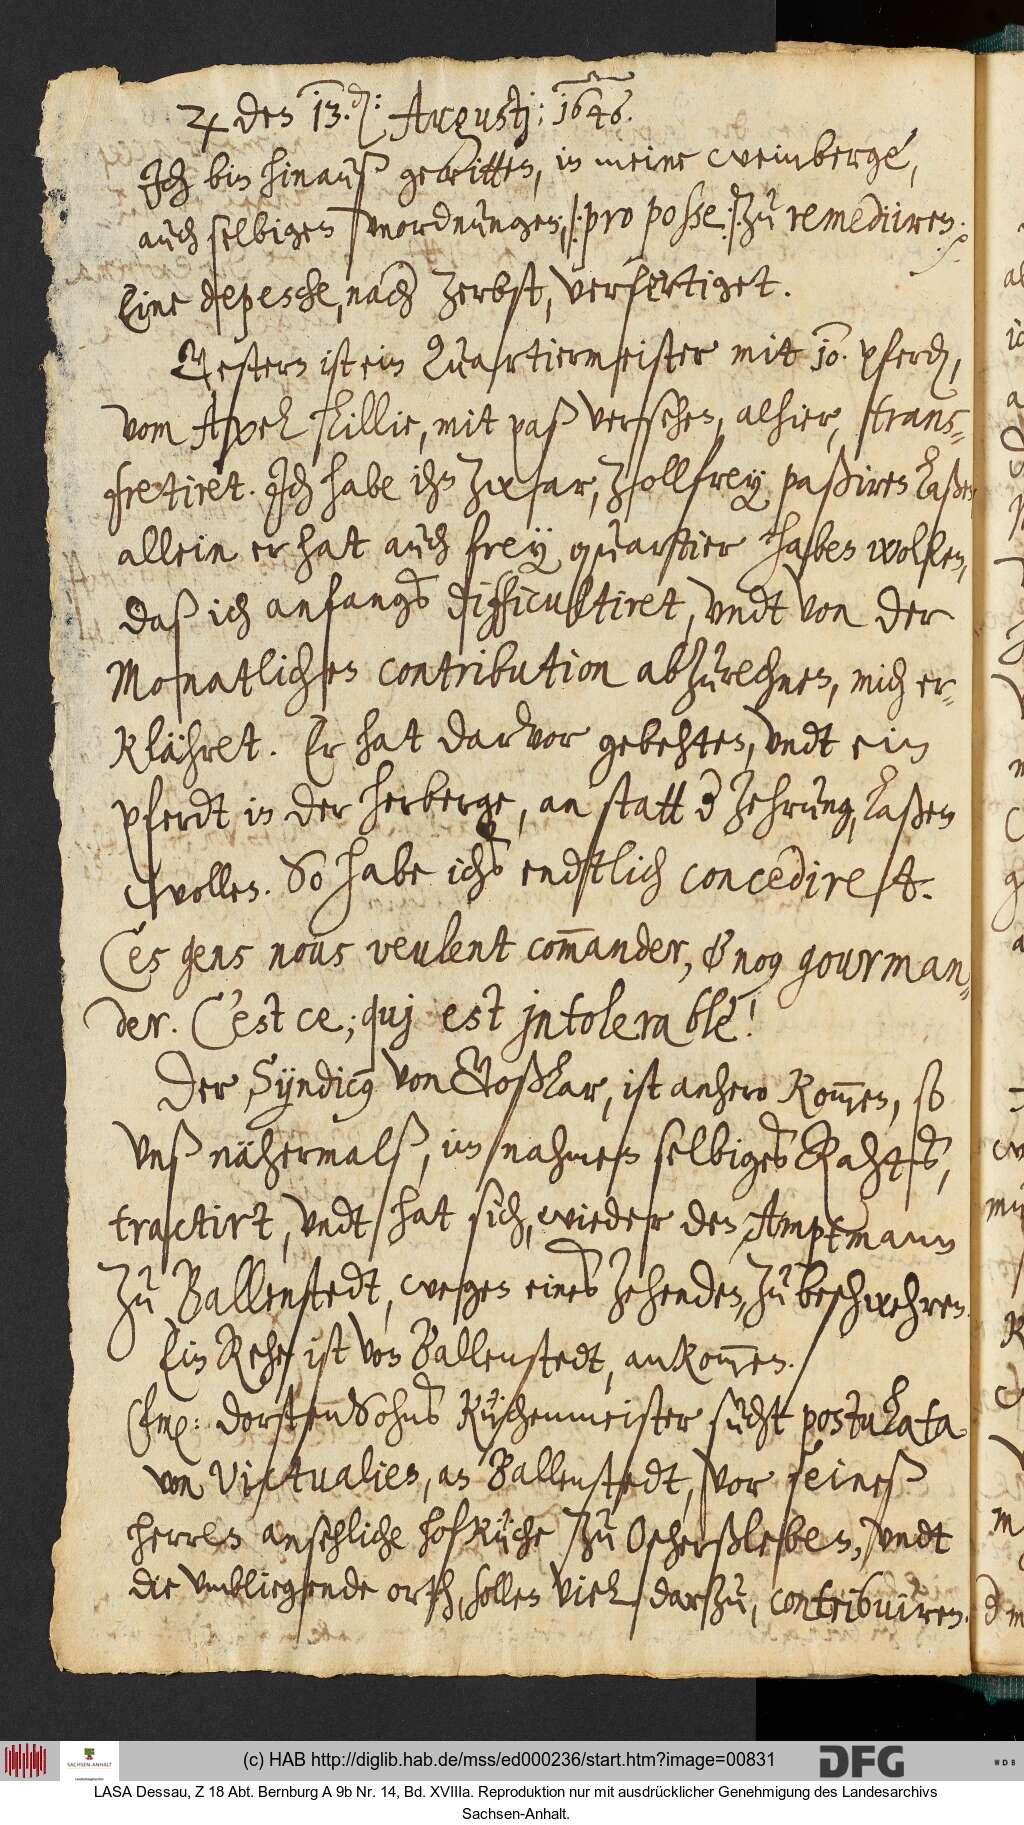 ♃ den 13.den: Augustj: 1646.
Ich bin hinauß geritten, in meine weinberge,
auch selbigen vnordnungen, /: pro posse :/ zu remediiren.
Eine depesche, nach Zerbst, verfertiget.
Gestern ist ein Quartiermeister mit 10. pferden,
vom Axel Lillie, mit paß versehen, alhier, trans=
fretiret. Ich habe ihn zwar, zollfrey paßiren laßen
allein er hat auch frey quartier haben wollen,
daß ich anfangs difficultiret, vndt von der
Monatlichen contribution abzurechnen, mich er=
klähret. Er hat darvor gebehten, vndt ein
pferdt in der herberge, an statt der Zehrung, laßen
wollen. So habe ichs endtlich concediret.
Ces gens nous veulent com̄ander, & nous gourman=
der. C'est ce; quj est jntolerable!
Der Syndicus von Goßlar, ist anhero kom̄en, so
vnß nähermalß, im nahmen selbiges Rahts,
tractirt, vndt hat sich, wieder den Amptmann
zu Ballenstedt, wegen eines Zehenden, zu beschwehren.
Ein Rehe, ist von Ballenstedt, ankom̄en.
Dorstensohns Küchenmeister sucht postulata
von Victualien, an Ballenstedt, vor seineß
herren ansehliche hofküche zu Oscherßleben, vndt
die vmbliegende orth, sollen viel darzu, contribuiren.
(c) HAB http://diglib.hab.de/mss/ed000236/start.htm?image=00831
SACHSEN-ANHALT
DFG
WDB
LASA Dessau, Z 18 Abt. Bernburg A 9b Nr. 14, Bd. XVIIIa. Reproduktion nur mit ausdrücklicher Genehmigung des Landesarchivs
Sachsen-Anhalt.